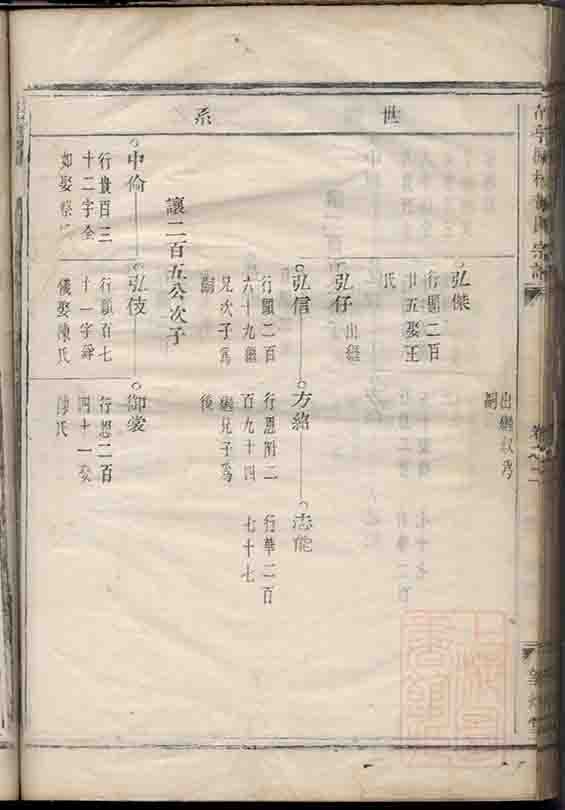 世系
出繼叔為
嗣
弘傑
行願二百
廿五娶王
氏
弘仔
出繼
弘信
行願二百
六十九繼
兄次子為
嗣
方綹
行恩附二
百九十四
繼兄子為
後
志能
行華二百
七十七
讓二百五公次子
中倫
行貴百三
十二字全
如娶蔡氏
弘伎
行願百七
十一字
儀娶陳氏
御裳
行恩二百
四十一娶
陳氏